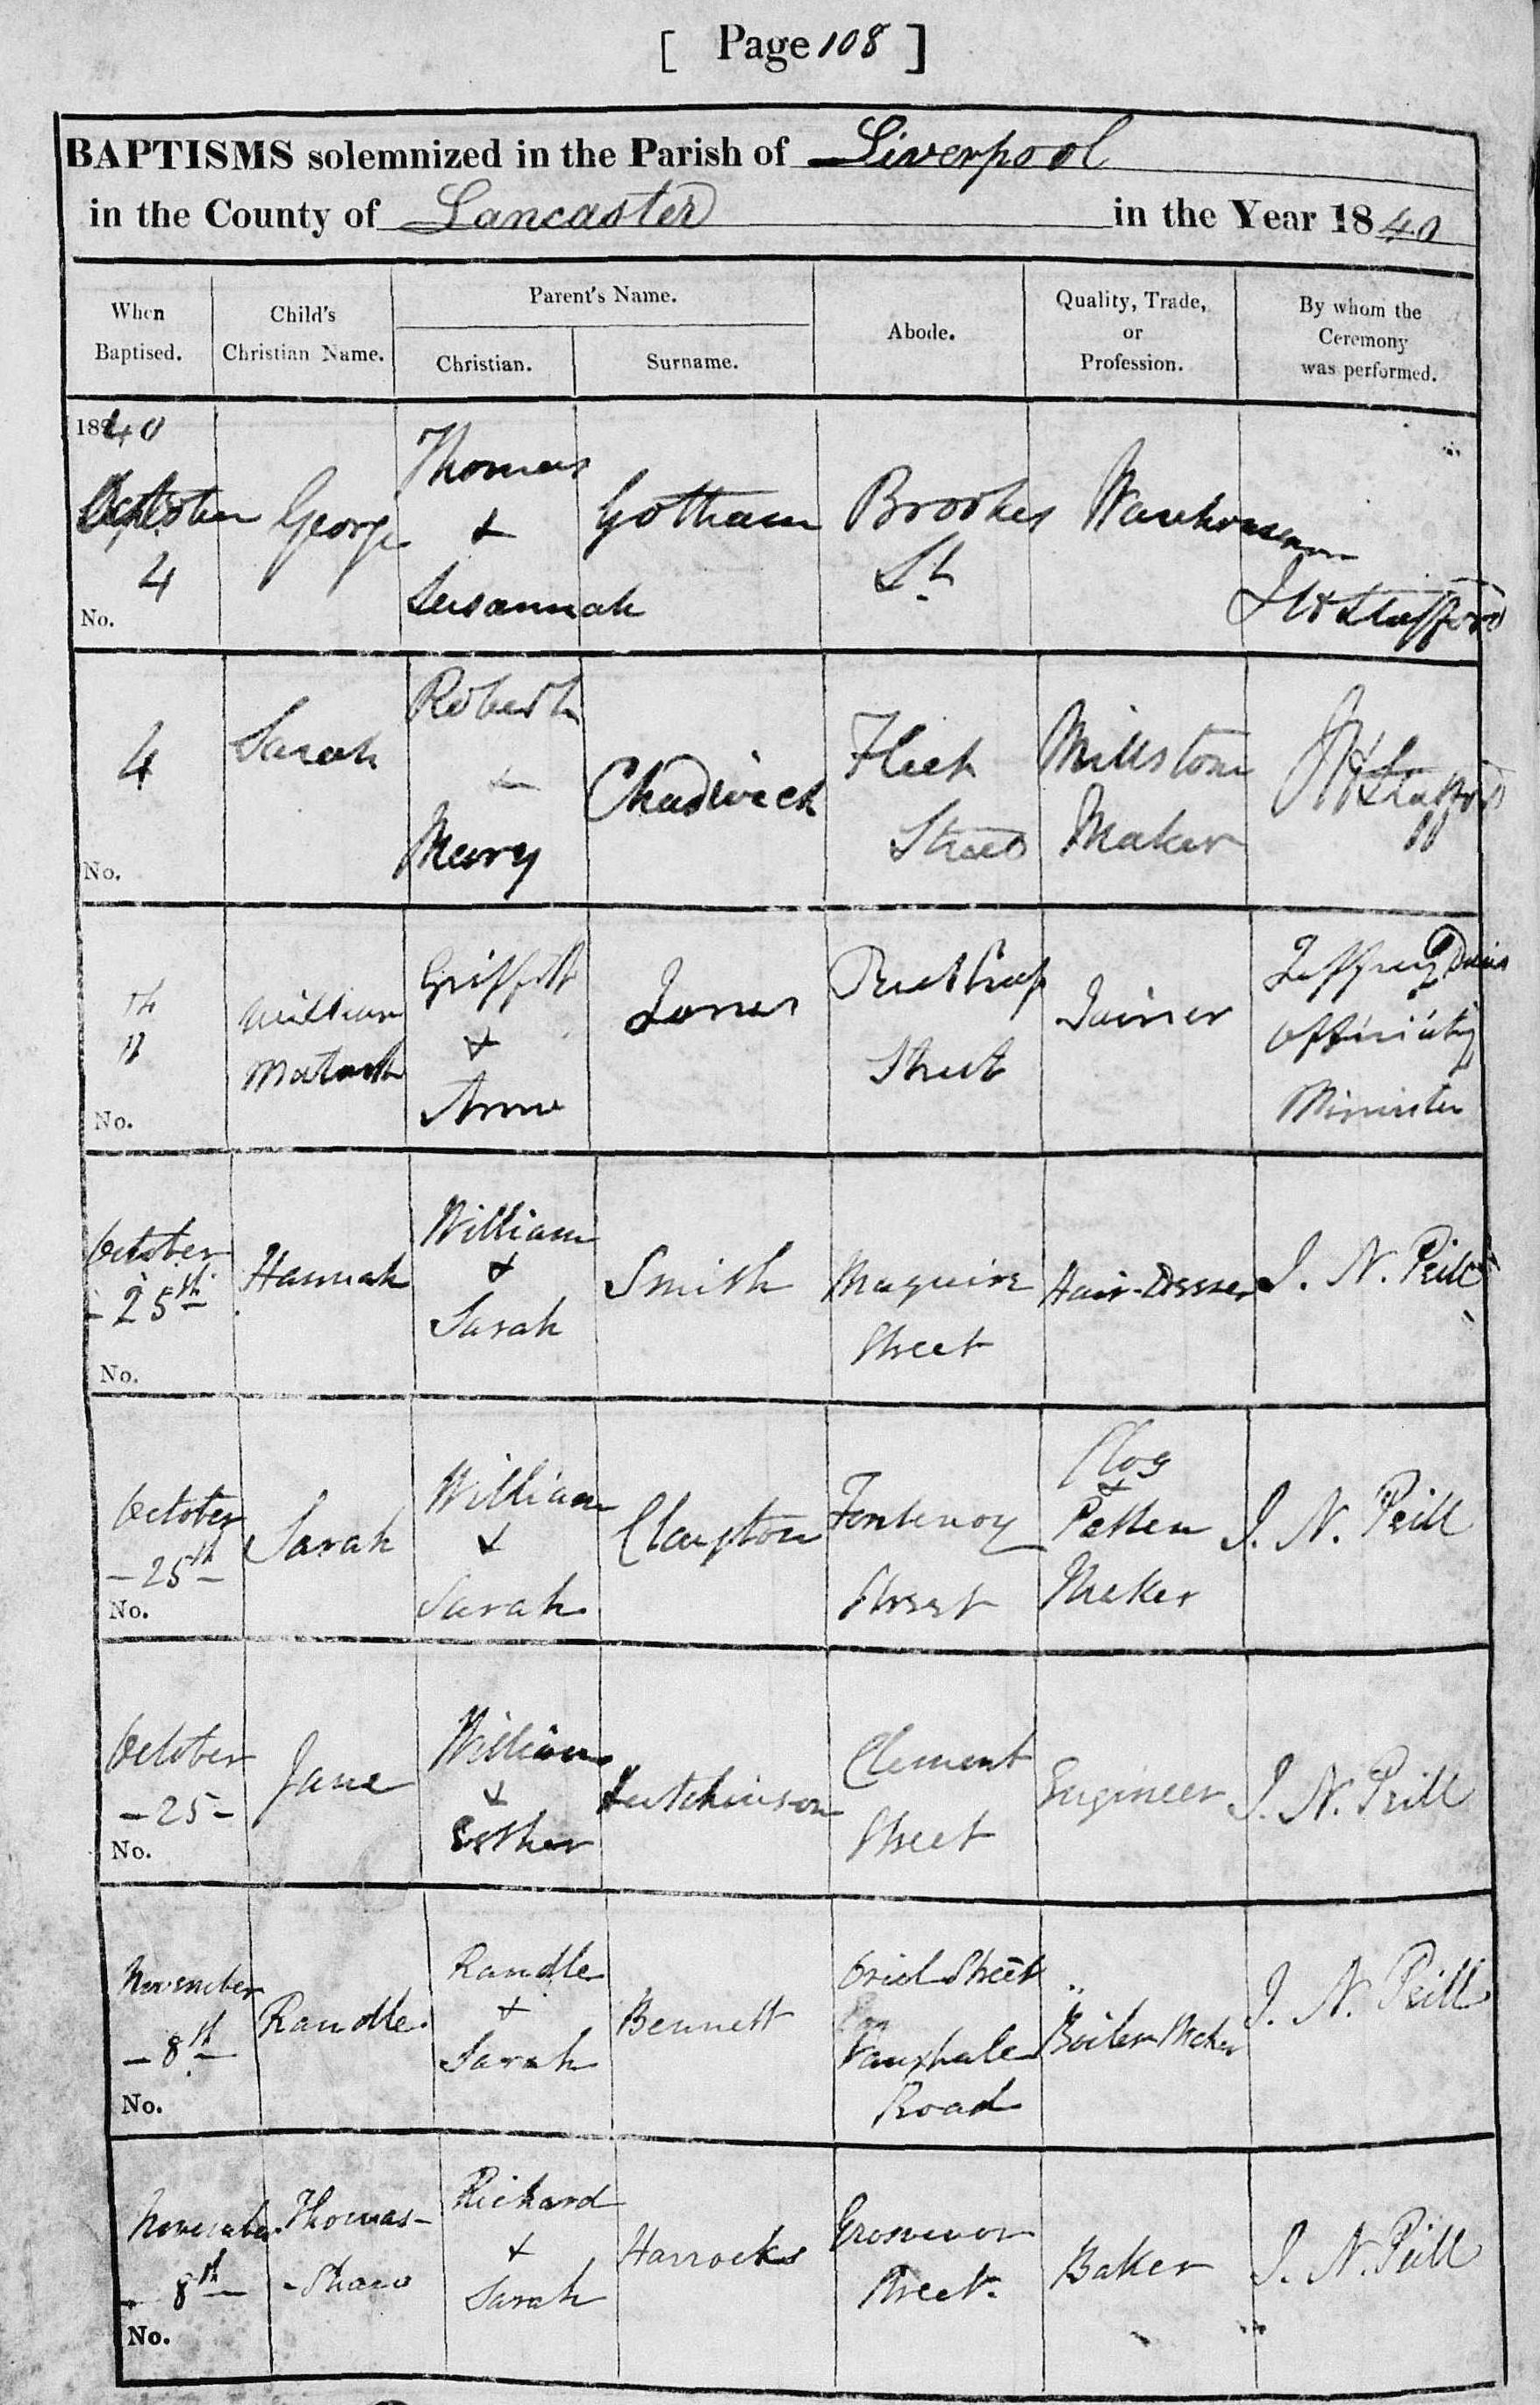 [ Page 108 ]
BAPTISMS solemnized in the Parish of Liverpool
in the County of Lancaster in the Year 1840
When Baptised.
Child's Christian Name.
Parent's Name.
Christian.
Surname.
Abode.
Quality, Trade, or Profession.
By whom the Ceremony was performed.
1840
October
4
No.
George
Thomas
&
Susannah
Gotham
Brookes
St
Warehouseman
JH Stafford
4
No.
Sarah
Robert
&
Mary
Chadwick
Fleet
Street
Millstone
Maker
JH Stafford
th
11
No.
William
Griffith
&
Anne
Jones
Street
Joiner
Jeffrey Davies
Officiating
Minister
October
- 25th
No.
Hannah
William
&
Sarah
Smith
Maguire
Street
Hair-Dresser
J. N. Peill
October
- 25th -
No.
Sarah
William
&
Sarah
Clayton
Fontenoy
Street
Clog
&
Patten
Maker
J. N. Peill
October
- 25 -
No.
Jane
William
&
Esther
Hutchinson
Clement
Street
Engineer
J. N. Peill
November
- 8th
No.
Randle
Randle
&
Sarah
Bennett
Oriel Street
Vauxhale
Road
Boiler Maker
J. N. Peill
November
- 8th
No.
Thomas-
-Shaw
Richard
&
Sarah
Harrocks
Grosvenor
Street.
Baker
J. N. Peill